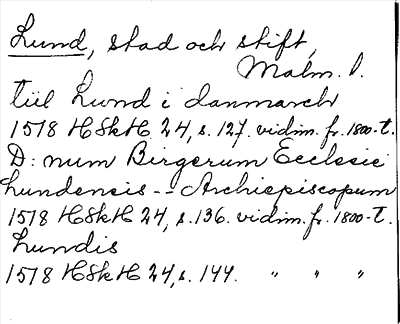 Lund, stad och stift,
Malm. l.
till Lwnd i danmarch
1518 HSkH 24, s. 127. vidim. fr. 1800-t.
D: num Birgerum Ecclesie
Lundensis -- Archiepiscopum
1518 HSkH 24, s. 136. vidim. fr. 1800-t.
Lundis
1518 HSkH 24, s. 144. " " "